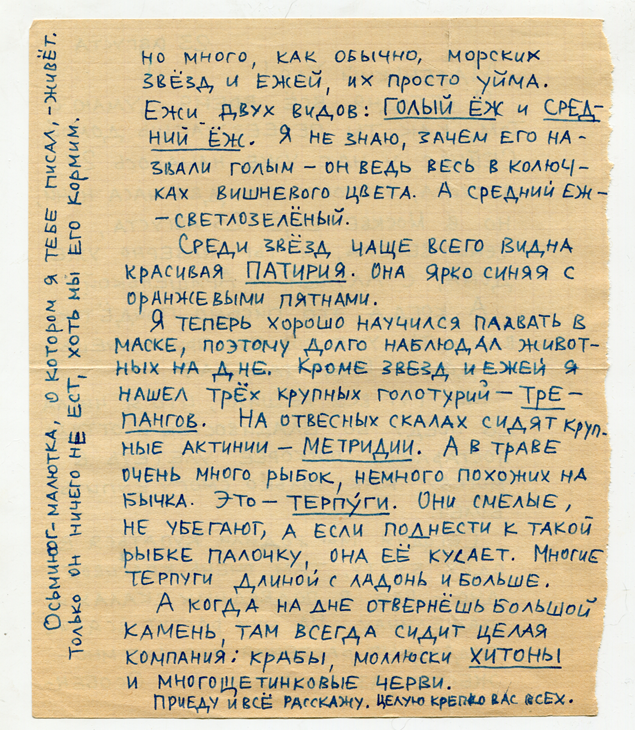 но много, как обычно, морских
звёзд и ежей, их просто уйма.
Ежи двух видов: голый ёж и сред-
ний ёж. Я не знаю, зачем его на-
звали голым – он ведь весь в колюч-
ках вишневого цвета. А средний еж-
- светлозелёный.
Среди звёзд чаще всего видна
красивая патирия. Она ярко синяя с
оранжевыми пятнами.
Я теперь хорошо научился плавать в
маске, поэтому долго наблюдал живот-
ных на дне. Кроме звезд и ежей я
нашел трёх крупных голотурий – тре-
пангов. На отвесных скалах сидят круп-
ные актинии – метридии. А в траве
очень много рыбок, немного похожих на
бычка. Это – терпуги. Они смелые,
не убегают, а если поднести к такой
рыбке палочку, она её кусает. Многие
терпуги длиной с ладонь и больше.
А когда на дне отвернёшь большой
камень, там всегда сидит целая
компания: крабы, моллюски хитоны
и многощетинковые черви.
Приеду и всё расскажу. Целую крепко вас всех.
Осьминог-малютка, о котором я тебе писал, - живёт.
Только он ничего не ест, хоть мы его кормим.